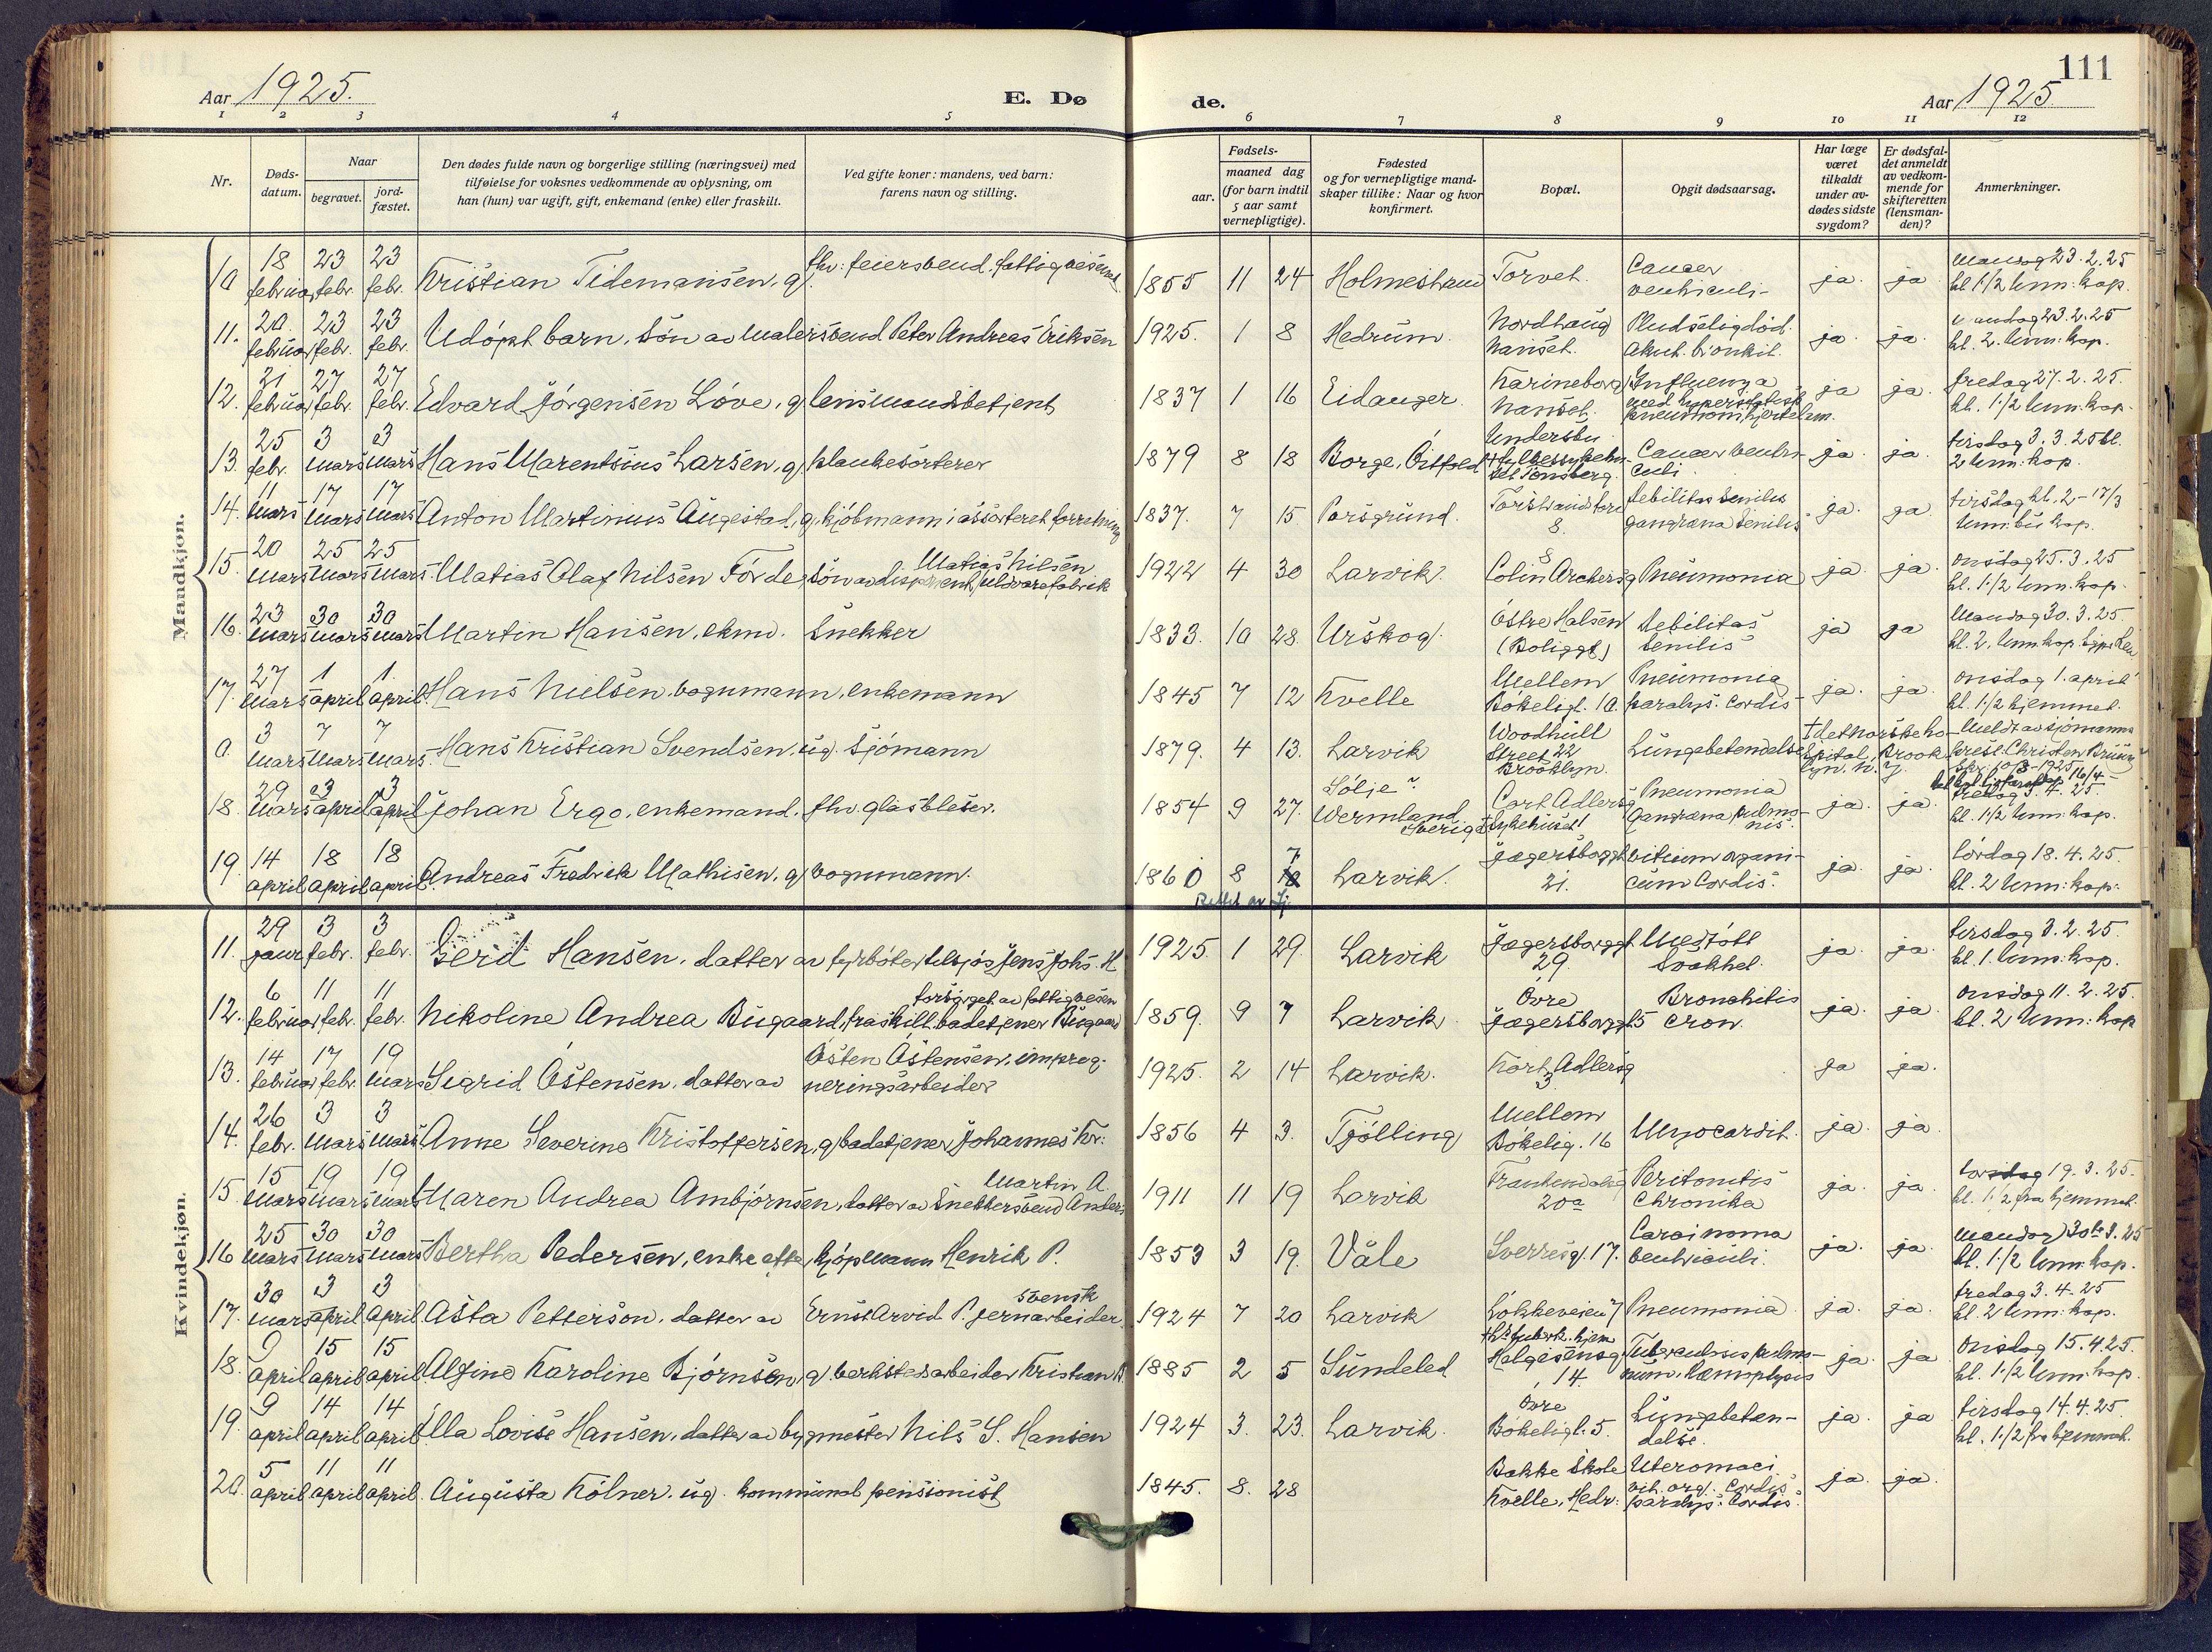 111
Aar 1925.
E. Dø
de.
Aar 1925
1 2 3 4 5 6 7 8 9 10 11 12
Nr.
Døds-
datum.
Naar
begravet.
jord-
fæstet.
Den dødes fulde navn og borgerlige stilling (næringsvei) med
tilføielse for voksnes vedkommende av oplysning, om
han (hun) var ugift, gift, enkemand (enke) eller fraskilt.
Ved gifte koner: mandens, ved barn:
farens navn og stilling.
Fødsels-
aar.
maaned dag
(for barn indtil
5 aar samt
vernepligtige).
Fødested
og for vernepligtige mand-
skaper tillike: Naar og hvor
konfirmert.
Bopæl.
Opgit dødsaarsag.
Har læge
været
tilkaldt
under av-
dødes sidste
sygdom?
Er dødsfal-
det anmeldt
av vedkom-
mende for
skifteretten
(lensman-
den)?
Anmerkninger.
Mandkjøn.
10 18 februar 23 febr. 23 febr. Kristian Tidemansen, g. fhv. feiersvend. 1855 11 24 Holmestrand Torvet Cancer ventriculi ja. ja mandag 23.2.25 kl 1 1/2 kap.
11. 20. februar 23 febr. 23 febr. Udöpt barn, sön av malersvend Peter Andreas Eriksen 1925. 1 8 Hedrum. Nordhaug Nanset. Pludselig död. akut. bronkit. ja. ja. mandag 23.2.25 kl. 2. kap.
12. 21 februar 27 febr. 27 febr. Edvard Jörgensen Löve, g. lensmandsbetjent 1837 1 16 Eidanger Karineborg Nanset. Influenza med ja ja fredag 27.2.25. kl. 1 1/2 kap.
13. 25 febr. 3 mars 3 mars Hans Marentsius Larsen, g. plankesorterer 1879 8 18 Borge, Östfold Undersbu Tönsberg. Cancer ventriculi ja. ja. tirsdag 3.3.25 kl. 2 kap.
14. 11 mars 17 mars 17 mars Anton Martinius Augestad, g. kjöbmann i assorteret forretning 1837. 7 15 Porsgrund. 8. debilitas senilis gangræna senilis ja. ja. tirsdag kl. 2 - 17/3 kap.
15. 20 mars 25 mars 25 mars. Matias Olaf Nilsen Förde, sön av Matias Nilsen uldvarefabrik 1922 4 30 Larvik. Colin Archersg 8 Pneumonia ja. ja. onsdag 25.3.25 kl. 1 1/2 kap.
16. 23 mars 30 mars 30 mars Martin Hansen, ekmd. Snekker 1833. 10 28. Urskog. Östre Halsen (Boliggt) debilitas senilis ja ja Mandag 30.3.25. kl. 2. kap
17. 27 mars 1 april 1. april Hans Nielsen, vognmann, enkemann 1845 7 12 Kvelle Mellem Bökeligt. 10. Pneumonia paralys. cordis ja. ja. onsdag 1. april kl. 1 1/2 hjemmet.
0. 3 mars 7 mars 7 mars. Hans Kristian Svendsen, ug. sjömann 1879. 4 13. Larvik Woodhull Street 22 Brooklyn. Lungebetendelse † det norske hospital, Brooklyn. N. Y. Meldt av sjömannsprest Christen Bruun
18. 29 mars 3 april 3 april Johan Ergo, enkemand. fhv. glasbleser. 1854 9 27. Sölje Wermland Sverige Cort Adlersg Sykehuset Pneumonia Gangræna pulmonis. ja. ja. fredag 3.4.25. kl. 1 1/2 kap.
19. 14 april 18 april 18 april Andreas Fredrik Mathisen, g. vognmann. 1860 8 7 Rettet av Larvik. Jægersborggt 21. vitium organicum cordis. ja. ja. lördag 18.4.25. kl. 2 kap.
Kvindekjøn.
11. 29 januar 3 febr. 3 febr. Gerd Hansen, datter av fyrböter tilsjös Jens Johs. H 1925. 1 29. Larvik Jægersborggt. 29. Medfödt Svakhet. ja. ja. tirsdag 3.2.25. kl. 1. kap.
12. 6 februar 11 febr. 11 febr. Nikoline Andrea Bugaard, fraskilt badetjener Bugaard forsörget av fattigvesen 1859. 9 7 Larvik. Övre Jægersborggt 5 Bronchitis cron. ja. ja. onsdag 11.2.25. kl. 2 kap
13. 14 februar 17 febr. 19 mars Sigrid Östensen, datter av Östen Östensen, impregneringsarbeider 1925. 2 14 Larvik. Kort Adlersg 3. ja ja.
14. 26 febr. 3 mars 3 mars Anne Severine Kristoffersen, g. badetjener Johannes Kr: 1856 4 3. Tjölling Mellem Bökelig. 16 Myocardit. ja. ja.
15. 15 mars 19 mars 19 mars Maren Andrea Ambjörnsen, datter av Snekkersvend Martin A. 1911 11 19 Larvik 20a Peritonitis Chronika ja. ja. torsdag 19.3.25. kl. 1 1/2 fra hjemmet.
16 25 mars 30 mars 30 mars Bertha Pedersen, enke efter kjöpmann Henrik P. 1853 3 19. Våle Sverresg. 17. Carcinoma ventriculi. ja. ja. mandag 30te 3.25 kl. 1 1/2 kap.
17. 30 mars 3 april 3 april Asta Petterson, datter av svensk Ernst Arvid P. jernarbeider. 1924 7 20 Larvik Lökkeveien 7 Pneumonia. ja. ja. fredag 3.4.25 kl. 2 kap.
18. 9 april 15 april 15 april Algine Karoline Björnsen, g. verkstedsarbeider Kristian B. 1885 2 5 Sundeled Helgesensg 14. Tuberculosis pulmonum. Hæmoptysis ja. ja onsdag 15.4.25. kl. 1 1/2 kap.
19. 9 april 14 april 14 april Ella Lovise Hansen, datter av bygmester Nils S. Hansen 1924 3. 23. Larvik. Övre Bökeligt. 5. Lungebetendelse. ja. ja tirsdag 14.4.25. kl. 1 1/2 fra hjemmet.
20. 5 april 11 april 11 april. Augusta Kölner. ug. kommunal pensionist 1845. 8. 28 Bakke Skole Kvelle, Hedr: vit. org. Cordis paralys. Cordis. ja. ja.